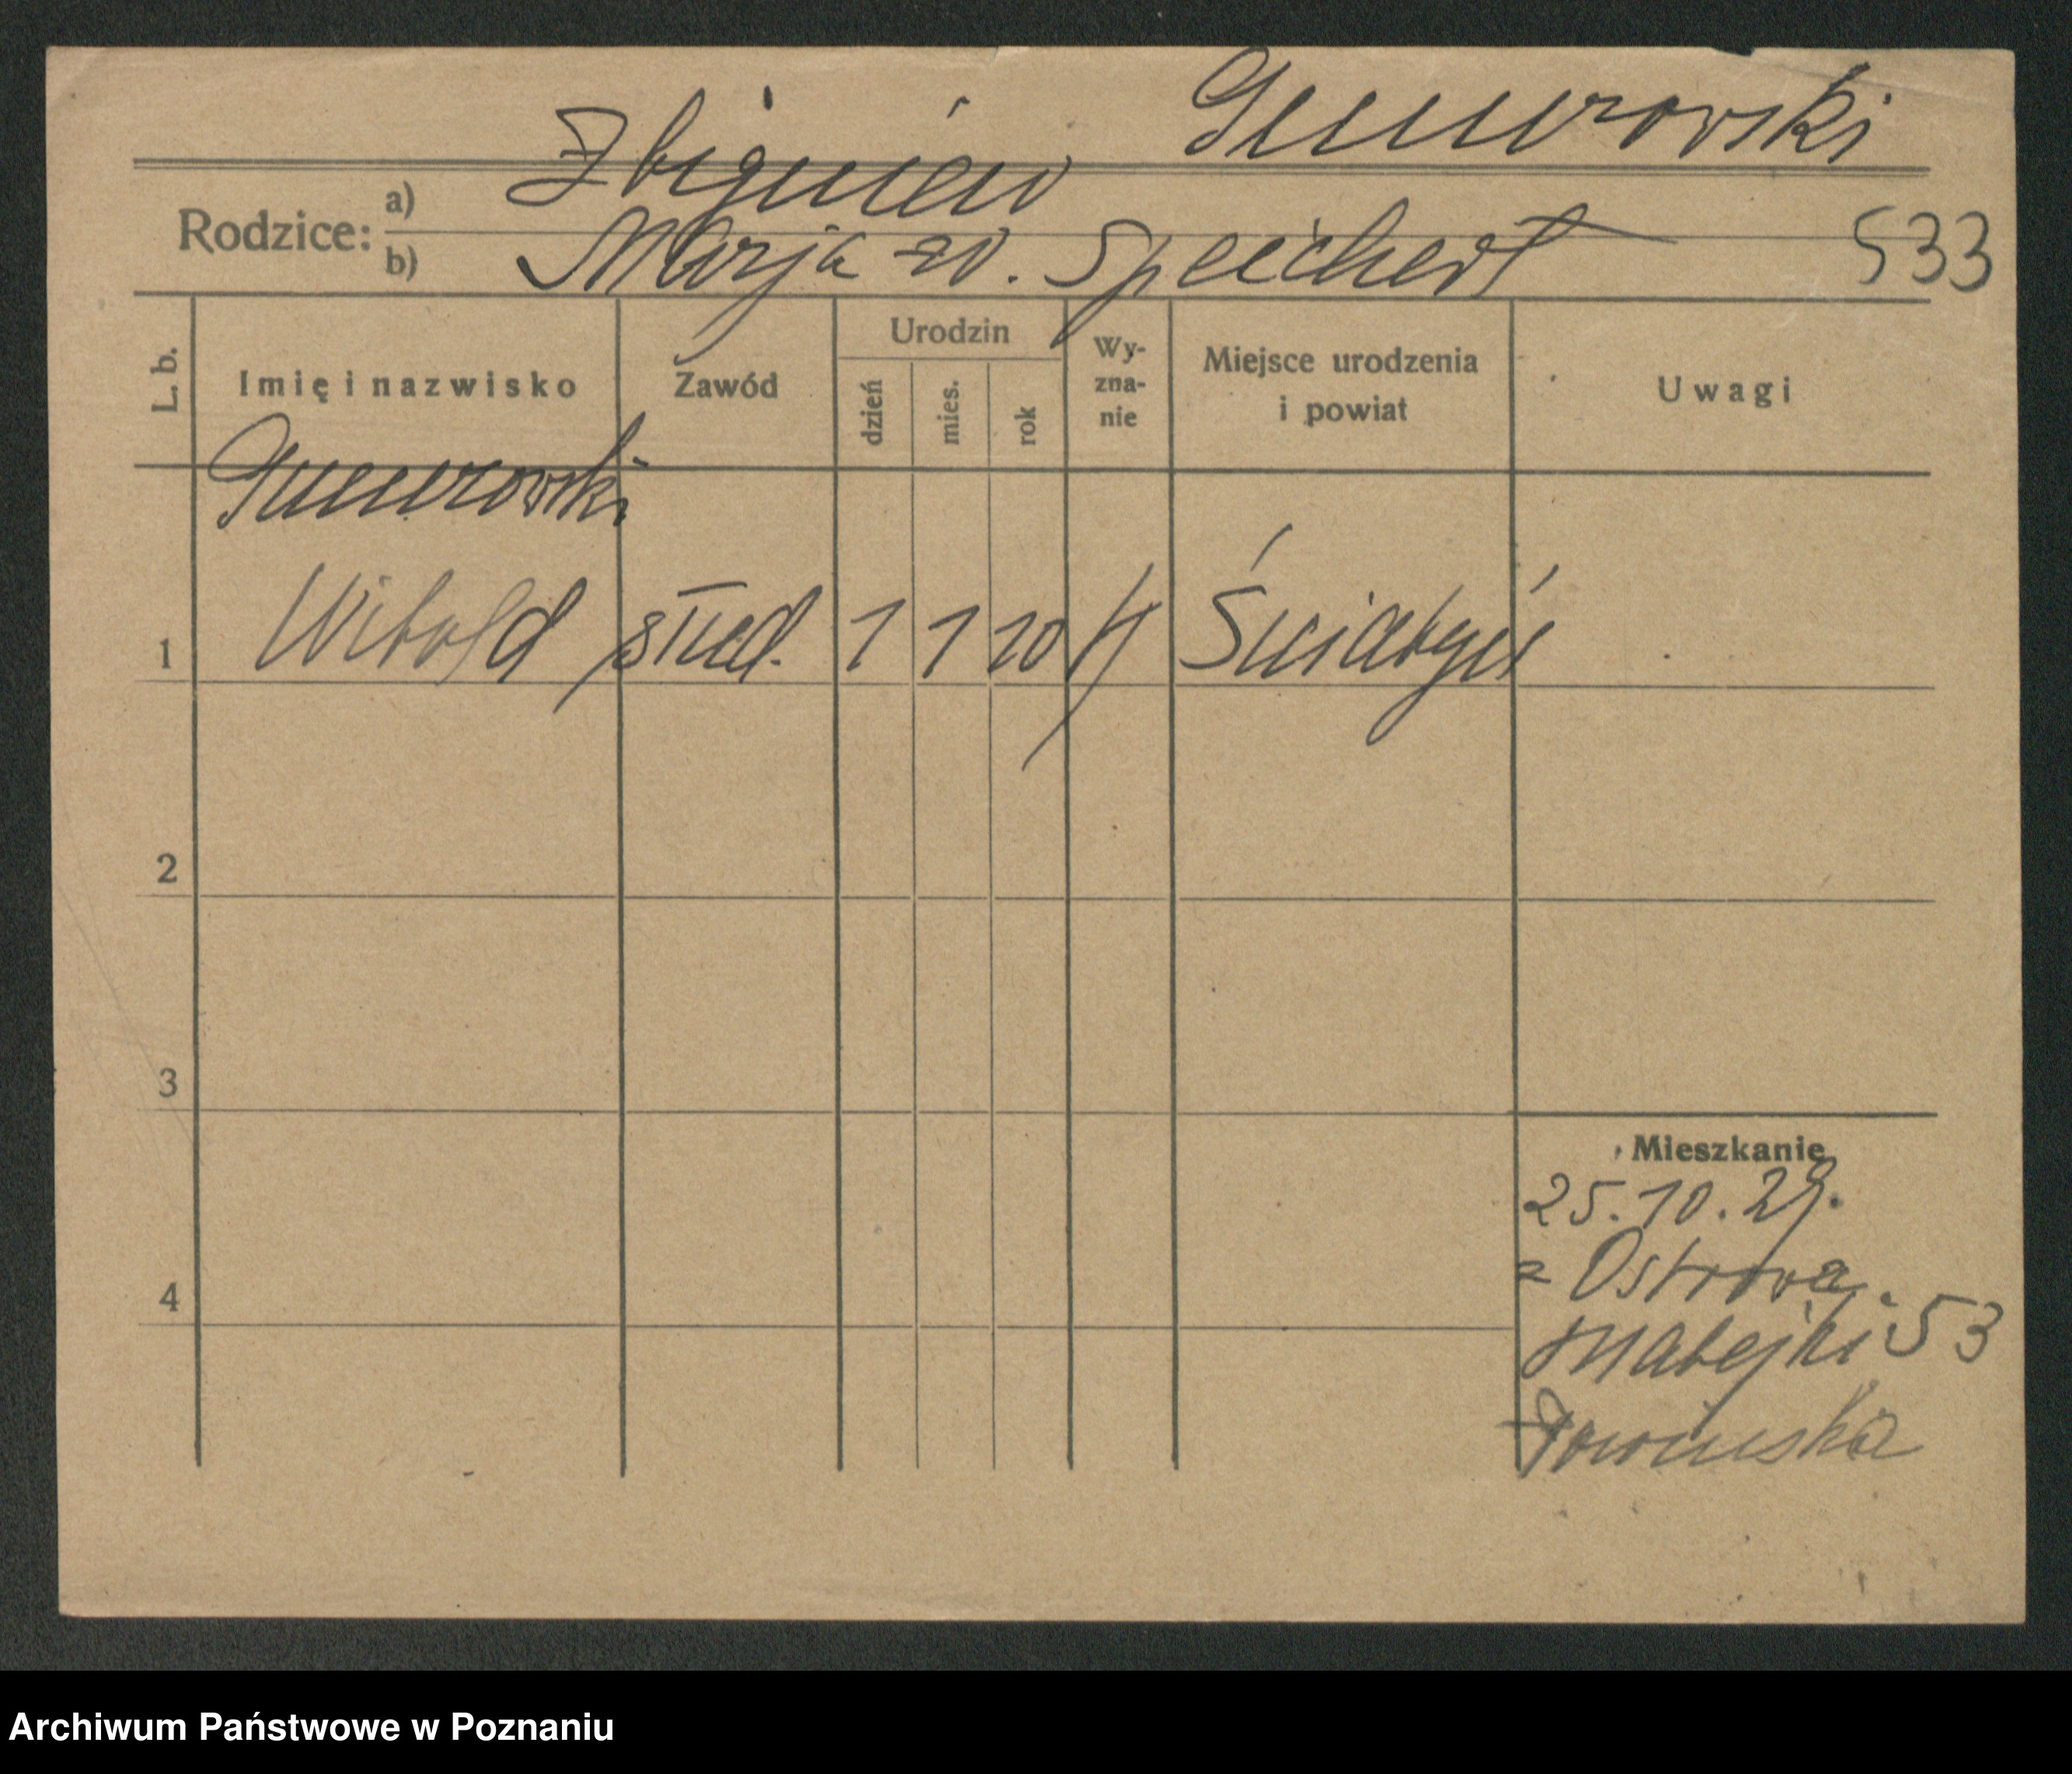 Gumrowski
Rodzice: a) Zbigniew
b) Marja zd. Speichert 533
L. b. Imię i nazwisko Zawód Urodzin dzień mies. rok Wy-zna-nie Miejsce urodzenia i powiat Uwagi
Gumrowski
1 Witold stud. 1 1 10
2
3
Mieszkanie
25.10.29.
4 z Ostrowa.
Matejki 53
Archiwum Państwowe w Poznaniu